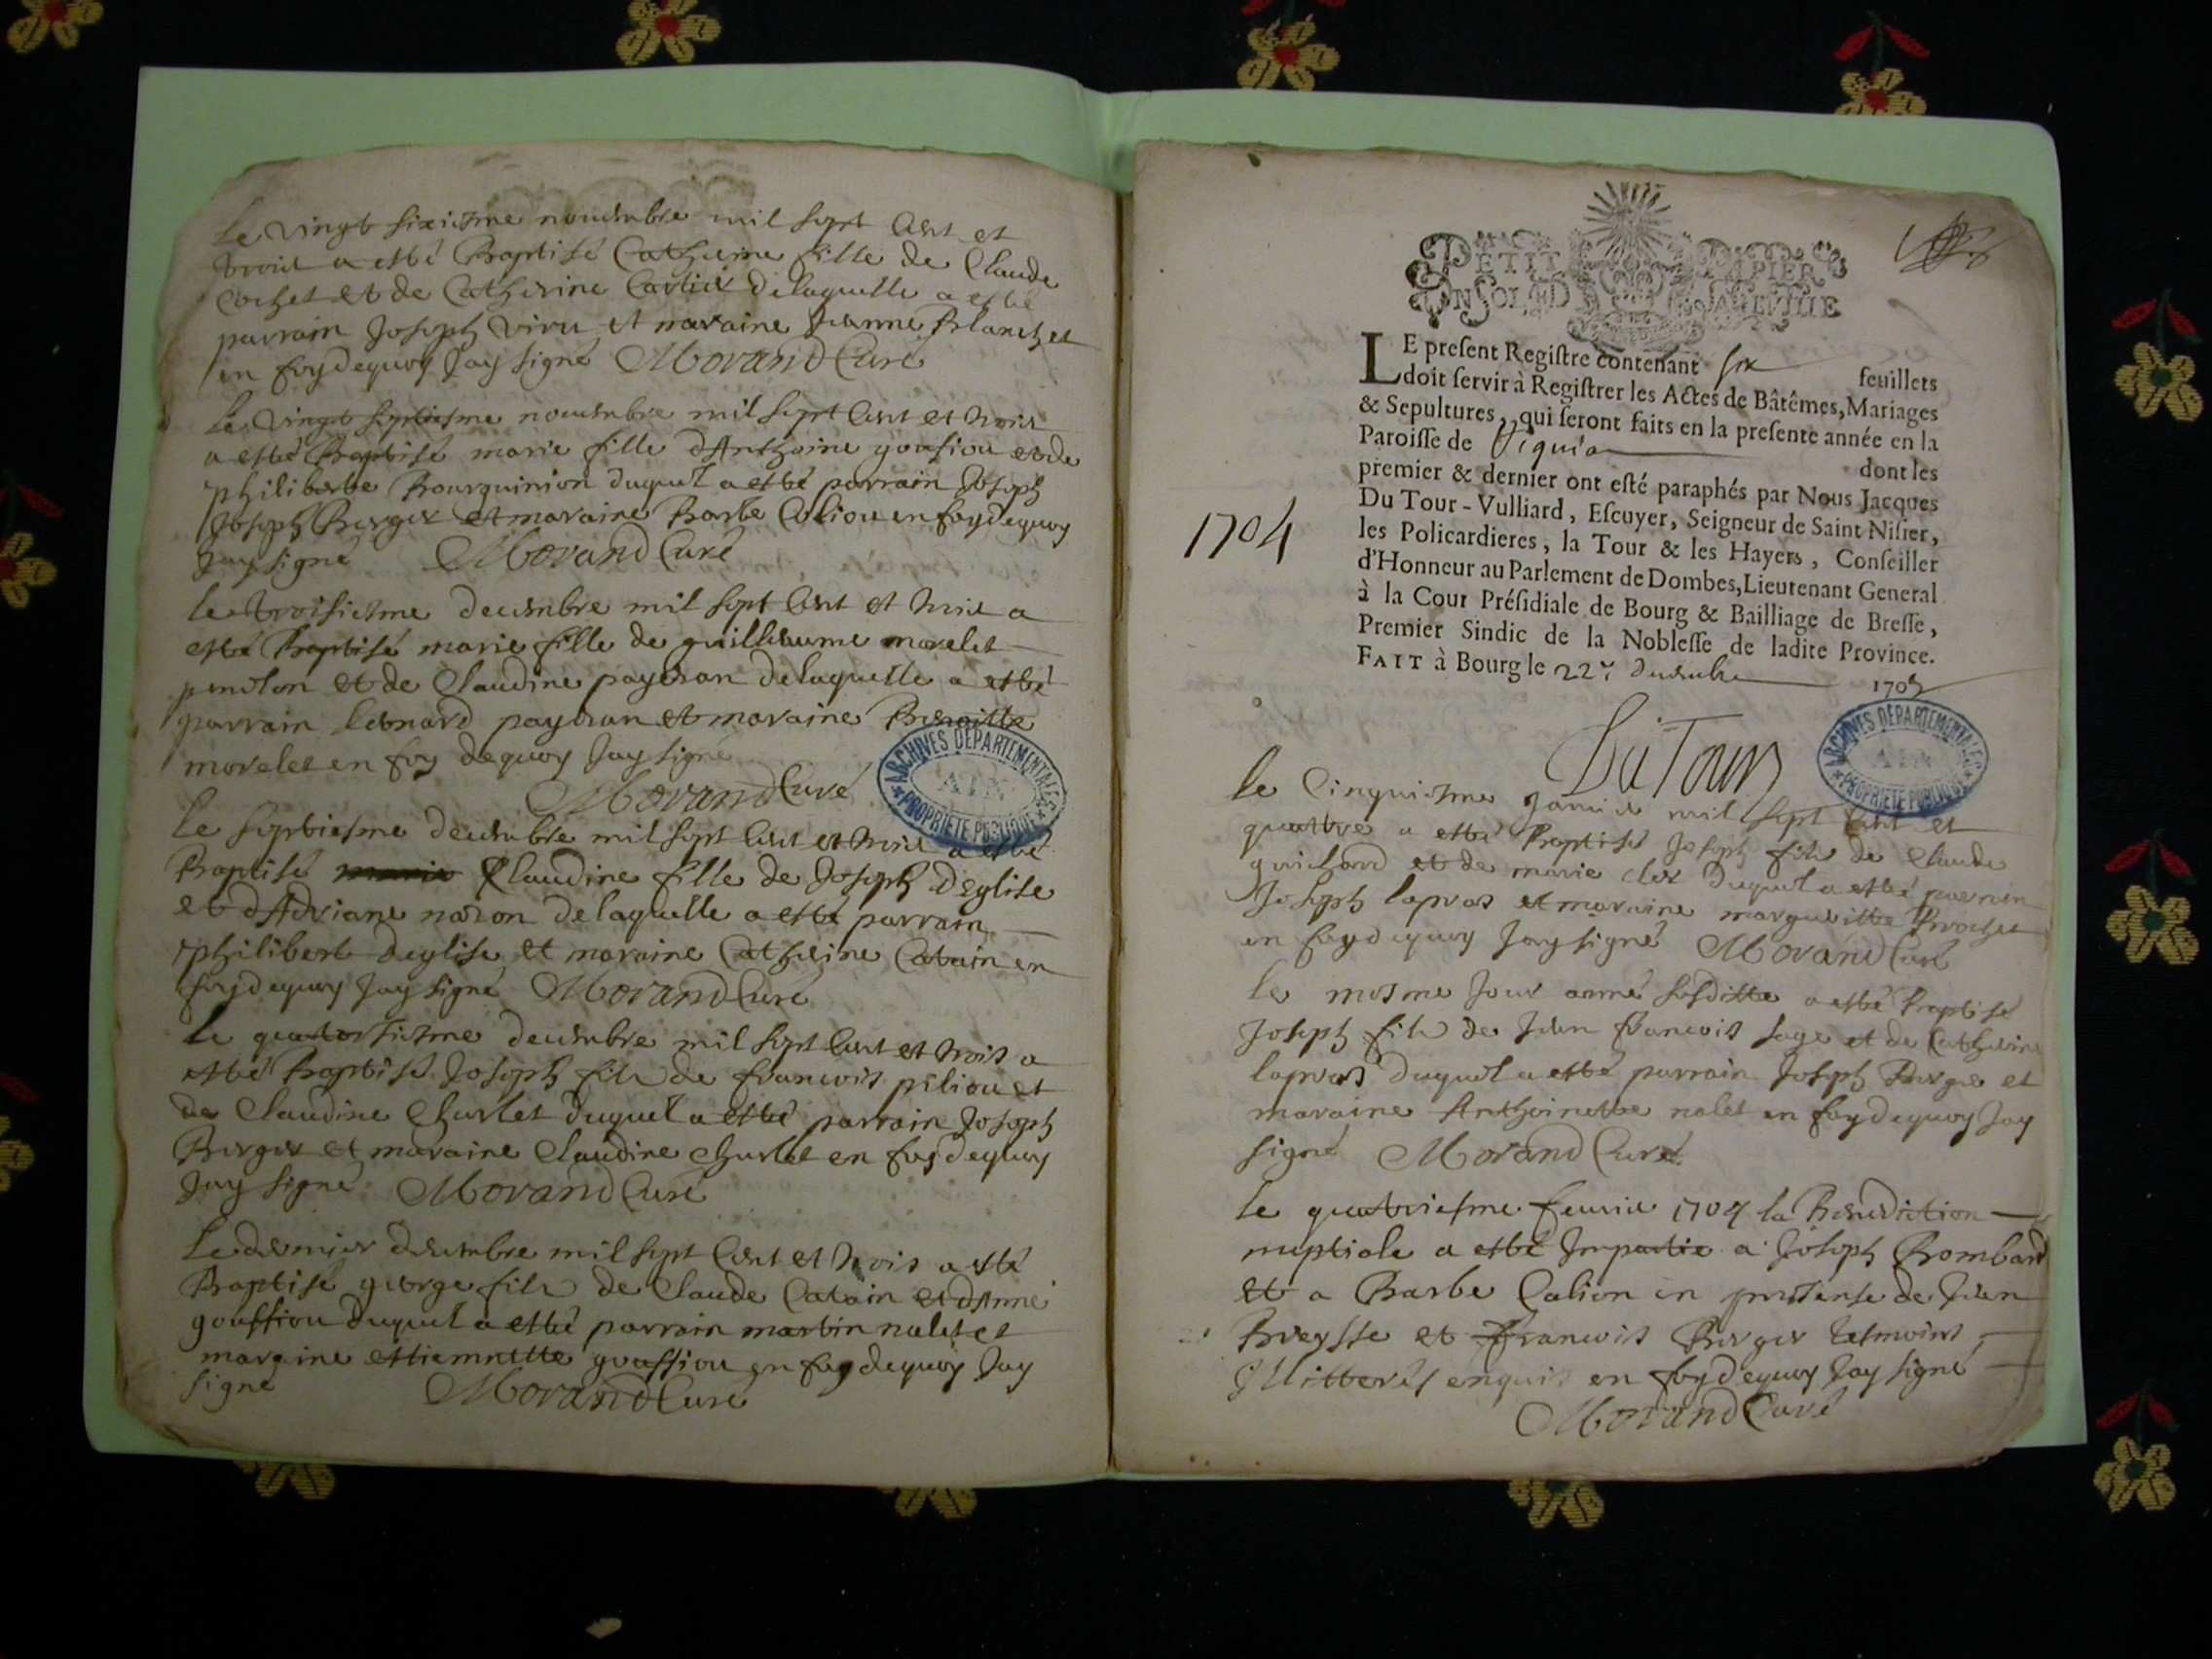 Le vingt sixiesme nouembre mil sept cent et
trois a esté Baptisé Catherine fille de Claude
Cochet et de Catherine Cartier delaquelle a esté
parrain Joseph viru et maraine Jeanne Blanchet
en foy dequoy Jay signé Morand Curé
Le vingt septiesme nouembre mil sept cent et trois
a esté Baptisé marie fille d'Anthoine goufiou et de
philiberte Bourguinion duquel a esté parrain Joseph
Joseph Berger et maraine Barbe Caliou en foy dequoy
Jay signé Morand Curé
le troisiesme decembre mil sept cent et trois a
esté Baptisé marie fille de guilleaume morelet
et de Claudine paysan delaquelle a esté
parrain leonard paysan et maraine Benoitte
morelet en foy dequoy Jay signé
Morand Curé
Le septiesme decembre mil sept cent et trois a esté
Baptisé Claudine fille de Joseph D'eglise
et d'Adriane delaquelle a esté parrain
philibert deglise et maraine Catherine Catain en
foy dequoy Jay signé Morand Curé
Le quatorsiesme decembre mil sept cent et trois a
esté Baptisé Joseph fils de francois piliou et
de Claudine Churlet duquel a esté parrain Joseph
Berger et maraine Claudine Churlet en foy dequoy
Jay signé Morand Curé
Le dernier decembre mil sept cent et trois a esté
Baptisé george fils de Claude Catain et d'Anne
gouffiou duquel a esté parrain martin nalet et
maraine estiennette gouffiou en foy dequoy Jay
signé Morand Curé
ARCHIVES DÉPARTEMENTALES
AIN
PROPRIÉTÉ PUBLIQUE
PETIT PAPIER
UN SOL LA FEUILLE
LE present Registre contenant six feuillets
doit servir à Registrer les Actes de Bâtêmes, Mariages
& Sepultures, qui seront faits en la presente année en la
Paroisse de Viriat dont les
premier & dernier ont esté paraphés par Nous Jacques
Du Tour-Vulliard, Escuyer, Seigneur de Saint Nisier,
les Policardieres, la Tour & les Hayers, Conseiller
d'Honneur au Parlement de Dombes, Lieutenant General
à la Cour Présidiale de Bourg & Bailliage de Bresse,
Premier Sindic de la Noblesse de ladite Province.
FAIT à Bourg le 22e decembre 1703
1704
Du Tour
ARCHIVES DÉPARTEMENTALES
AIN
PROPRIÉTÉ PUBLIQUE
le Cinquiesme Januier mil sept cent et
quattre a esté Baptisé Joseph fils de Claude
guichard et de marie cler duquel a esté parrain
Joseph lapras et maraine margueritte Brochet
en foy dequoy Jay signé Morand Curé
le mesme Jour anné susditte a esté Baptisé
Joseph fils de Jean francois sage et de Catherine
lapras duquel a esté parrain Joseph Berger et
maraine Anthoinette nalet en foy dequoy Jay
signé Morand Curé
le quatriesme feurier 1704 la Benediction
nuptiale a esté Impartie a Joseph Brombard
et a Barbe Calion en presence de Jean
Breysse et francois Berger tesmoins
Illitterés enquis en foy dequoy Jay signé
Morand Curé